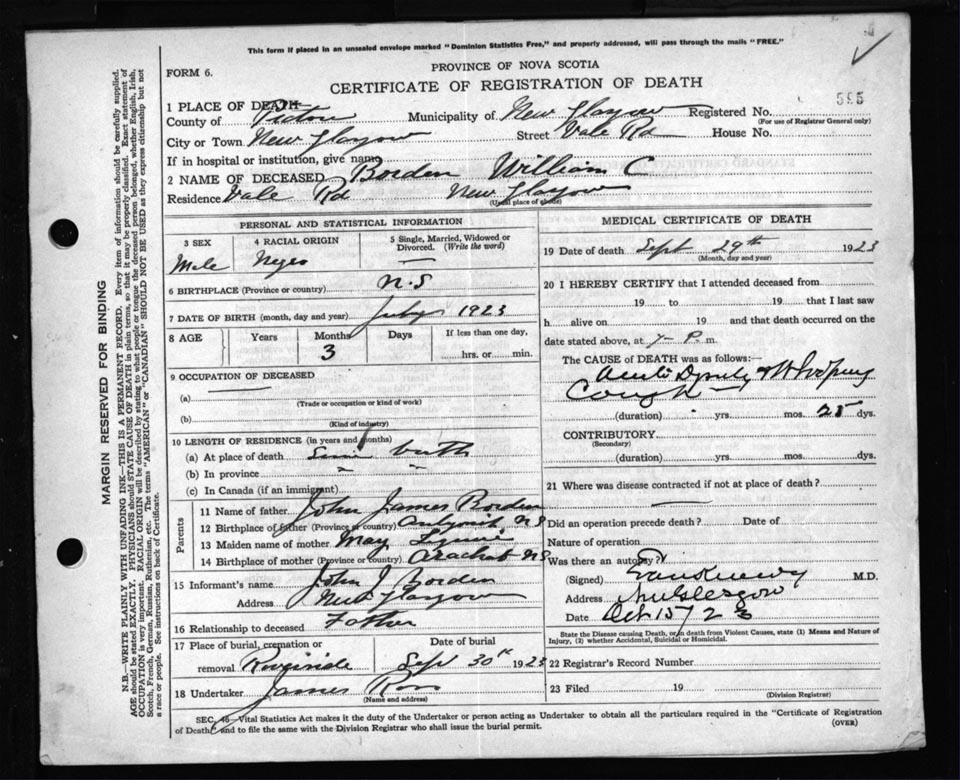 This form if placed in an unsealed envelope marked "Dominion Statistics Free," and properly addressed, will pass through the mails "FREE."
PROVINCE OF NOVA SCOTIA
FORM 6.
CERTIFICATE OF REGISTRATION OF DEATH
595
1 PLACE OF DEATH—
County of Pictou Municipality of New Glasgow Registered No.
(For use of Registrar General only)
City or Town New Glasgow Street Vale Rd House No.
If in hospital or institution, give name
2 NAME OF DECEASED Borden William C
Residence Vale Rd New Glasgow
(Usual place of abode)
PERSONAL AND STATISTICAL INFORMATION
3 SEX 4 RACIAL ORIGIN 5 Single, Married, Widowed or Divorced. (Write the word)
Male Negro —
6 BIRTHPLACE (Province or country) N.S
7 DATE OF BIRTH (month, day and year) July 1923
8 AGE Years Months Days If less than one day,
3 hrs. or min.
9 OCCUPATION OF DECEASED
(a)
(Trade or occupation or kind of work)
(b)
(Kind of industry)
10 LENGTH OF RESIDENCE (in years and months)
(a) At place of death birth
(b) In province " "
(c) In Canada (if an immigrant)
Parents
11 Name of father John James Borden
12 Birthplace of father (Province or country) N S
13 Maiden name of mother May
14 Birthplace of mother (Province or country) NS
15 Informant's name John J Borden
Address New Glasgow
16 Relationship to deceased Father
17 Place of burial, cremation or removal Riverside Date of burial Sept 30th 1923
18 Undertaker James
(Name and address)
MEDICAL CERTIFICATE OF DEATH
19 Date of death Sept 29th 1923
(Month, day and year)
20 I HEREBY CERTIFY that I attended deceased from
19 to 19 that I last saw
h alive on 19 and that death occurred on the
date stated above, at 7 P. m.
The CAUSE of DEATH was as follows:—
Whooping
Cough
(duration) yrs. mos. 25 dys.
CONTRIBUTORY
(Secondary)
(duration) yrs. mos. dys.
21 Where was disease contracted if not at place of death?
Did an operation precede death? Date of
Nature of operation
Was there an autopsy?
(Signed) M.D.
Address New Glasgow
Date Oct 15/23
State the Disease causing Death, or, in death from Violent Causes, state (1) Means and Nature of
Injury, (2) whether Accidental, Suicidal or Homicidal.
22 Registrar's Record Number
23 Filed 19
(Division Registrar)
SEC. 46—Vital Statistics Act makes it the duty of the Undertaker or person acting as Undertaker to obtain all the particulars required in the "Certificate of Registration
of Death," and to file the same with the Division Registrar who shall issue the burial permit.
(OVER)
MARGIN RESERVED FOR BINDING
N.B.—WRITE PLAINLY WITH UNFADING INK—THIS IS A PERMANENT RECORD. Every item of information should be carefully supplied.
AGE should be stated EXACTLY. PHYSICIANS should STATE CAUSE OF DEATH in plain terms, so that it may be properly classified. Exact statement of
OCCUPATION is very important. RACIAL ORIGIN will be described by stating to what people or tongue the deceased person belonged, whether English, Irish,
Scotch, French, German, Russian, Ruthenian, etc. The terms "AMERICAN" or "CANADIAN" SHOULD NOT BE USED as they express citizenship but not
a race or people. See instructions on back of Certificate.